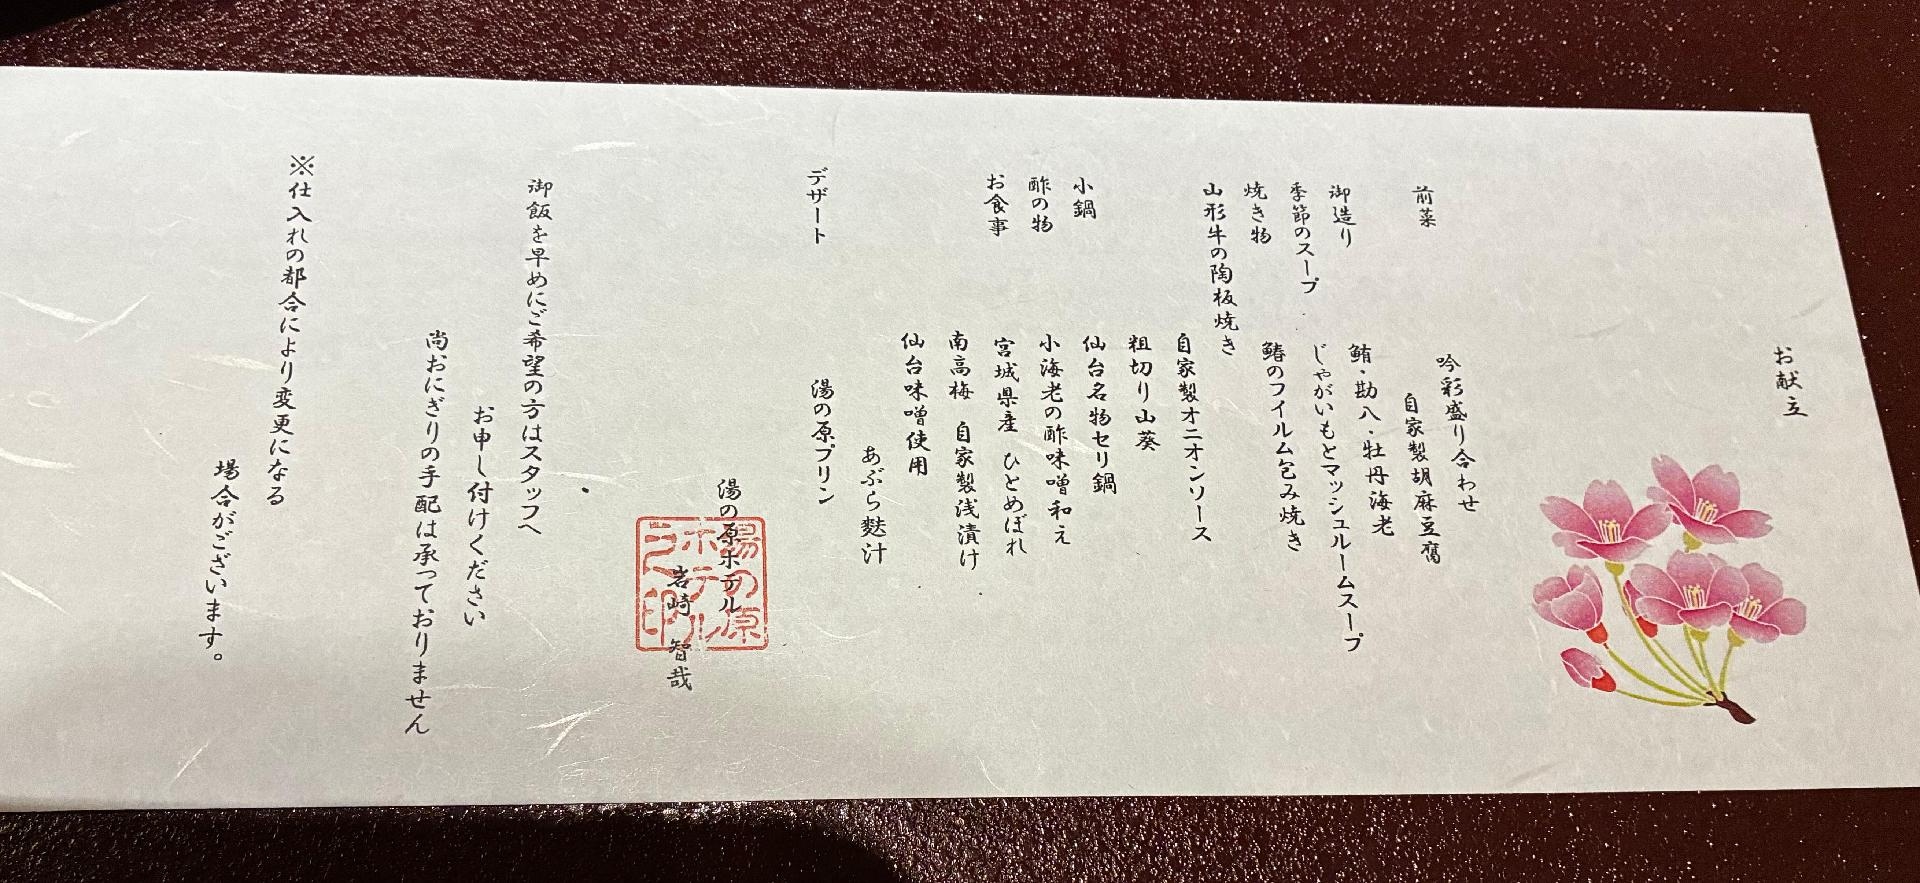 お献立
前菜 吟彩盛り合わせ
自家製胡麻豆腐
御造り 鮪・勘八・牡丹海老
季節のスープ じゃがいもとマッシュルームスープ
焼き物 鰆のフイルム包み焼き
山形牛の陶板焼き
自家製オニオンソース
粗切り山葵
小鍋 仙台名物セリ鍋
酢の物 小海老の酢味噌和え
お食事 宮城県産 ひとめぼれ
南高梅 自家製浅漬け
仙台味噌使用
あぶら麩汁
デザート 湯の原プリン
湯の原ホテル
岩崎 智哉
湯の原
ホテル
之印
御飯を早めにご希望の方はスタッフへ
お申し付けください
尚おにぎりの手配は承っておりません
※仕入れの都合により変更になる
場合がございます。